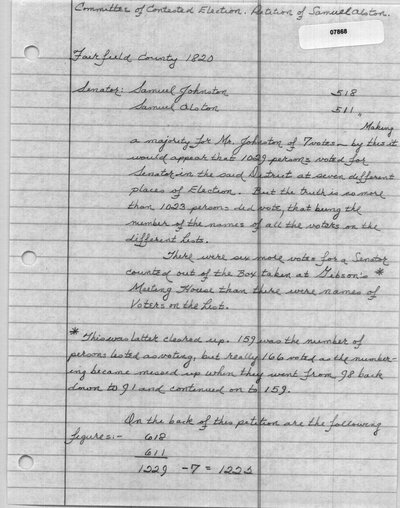 Committee of Contested Election. Petition of Samuel Alston.
07868
Fairfield County 1820
Senator: Samuel Johnston 518
Samuel Alston 511,
Making
a majority for Mr. Johnston of 7 votes - by this it
would appear that 1029 persons voted for
Senator in the said District at seven different
places of Election. But the truth is no more
than 1023 persons did vote, that being the
number of the names of all the voters on the
different lists.
There were six more votes for a Senator
counted out of the Box taken at Gibson's *
Meeting House than there were names of
Voters on the List.
* This was latter cleared up. 159 was the number of
persons listed as voting, but really 166 voted as the number-
ing became messed up when they went from 98 back
down to 91 and continued on to 159.
On the back of this petition are the following
figures:- 618
611
1229 -7 = 1222